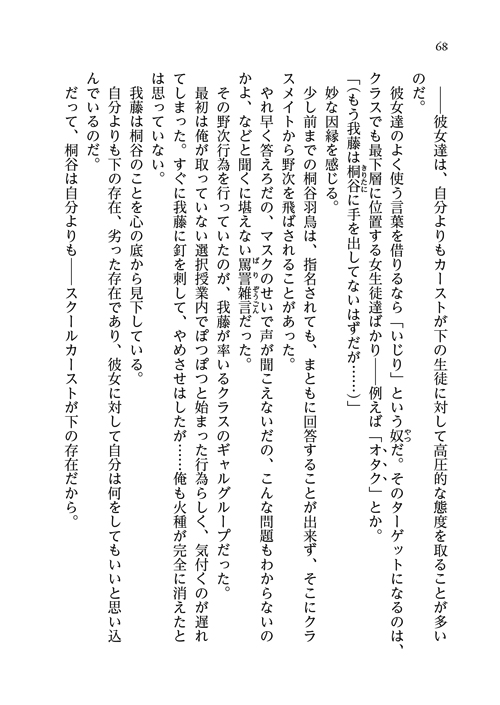 68
――彼女達は、自分よりもカーストが下の生徒に対して高圧的な態度を取ることが多い
のだ。
彼女達のよく使う言葉を借りるなら「いじり」という奴だ。そのターゲットになるのは、
クラスでも最下層に位置する女生徒達ばかり――例えば「オタク」とか。
「（もう我藤は桐谷に手を出してないはずだが……）」
妙な因縁を感じる。
少し前までの桐谷羽鳥は、指名されても、まともに回答することが出来ず、そこにクラ
スメイトから野次を飛ばされることがあった。
やれ早く答えろだの、マスクのせいで声が聞こえないだの、こんな問題もわからないの
かよ、などと聞くに堪えない罵詈雑言だった。
その野次行為を行っていたのが、我藤が率いるクラスのギャルグループだった。
最初は俺が取っていない選択授業内でぽつぽつと始まった行為らしく、気付くのが遅れ
てしまった。すぐに我藤に釘を刺して、やめさせはしたが……俺も火種が完全に消えたと
は思っていない。
我藤は桐谷のことを心の底から見下している。
自分よりも下の存在、劣った存在であり、彼女に対して自分は何をしてもいいと思い込
んでいるのだ。
だって、桐谷は自分よりも――スクールカーストが下の存在だから。